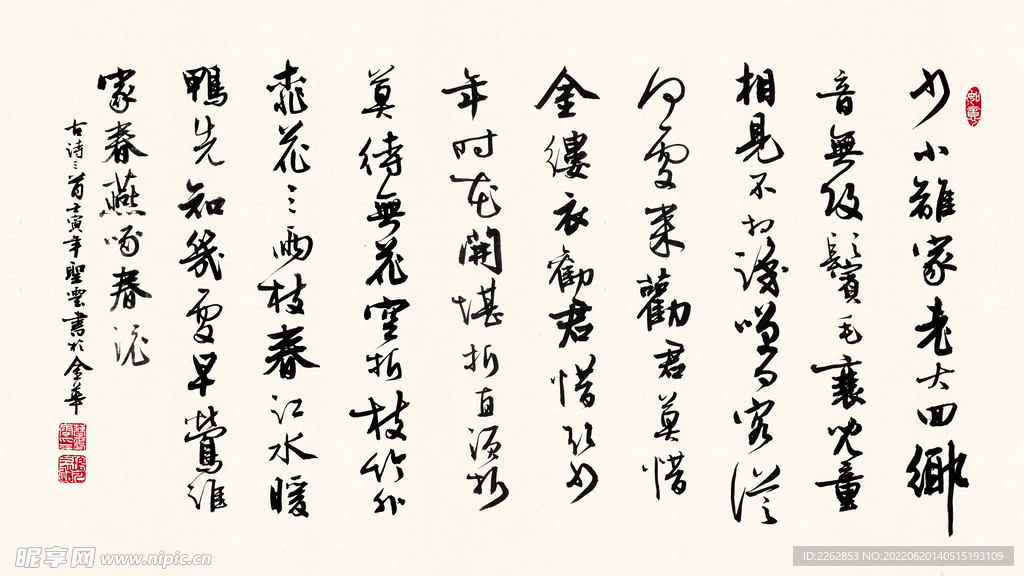 少小離家老大回鄉
音無改鬢毛衰兒童
相見不相識問客從
何處來勸君莫惜
金縷衣勸君惜取少
年時花開堪折直須折
莫待無花空折枝竹外
桃花三兩枝春江水暖
鴨先知幾處早鶯誰
家春燕啄春泥
古詩三首壬寅年聖雲書於金華
昵享网 www.nipic.cn
ID:2262853 NO:20220620140515193109